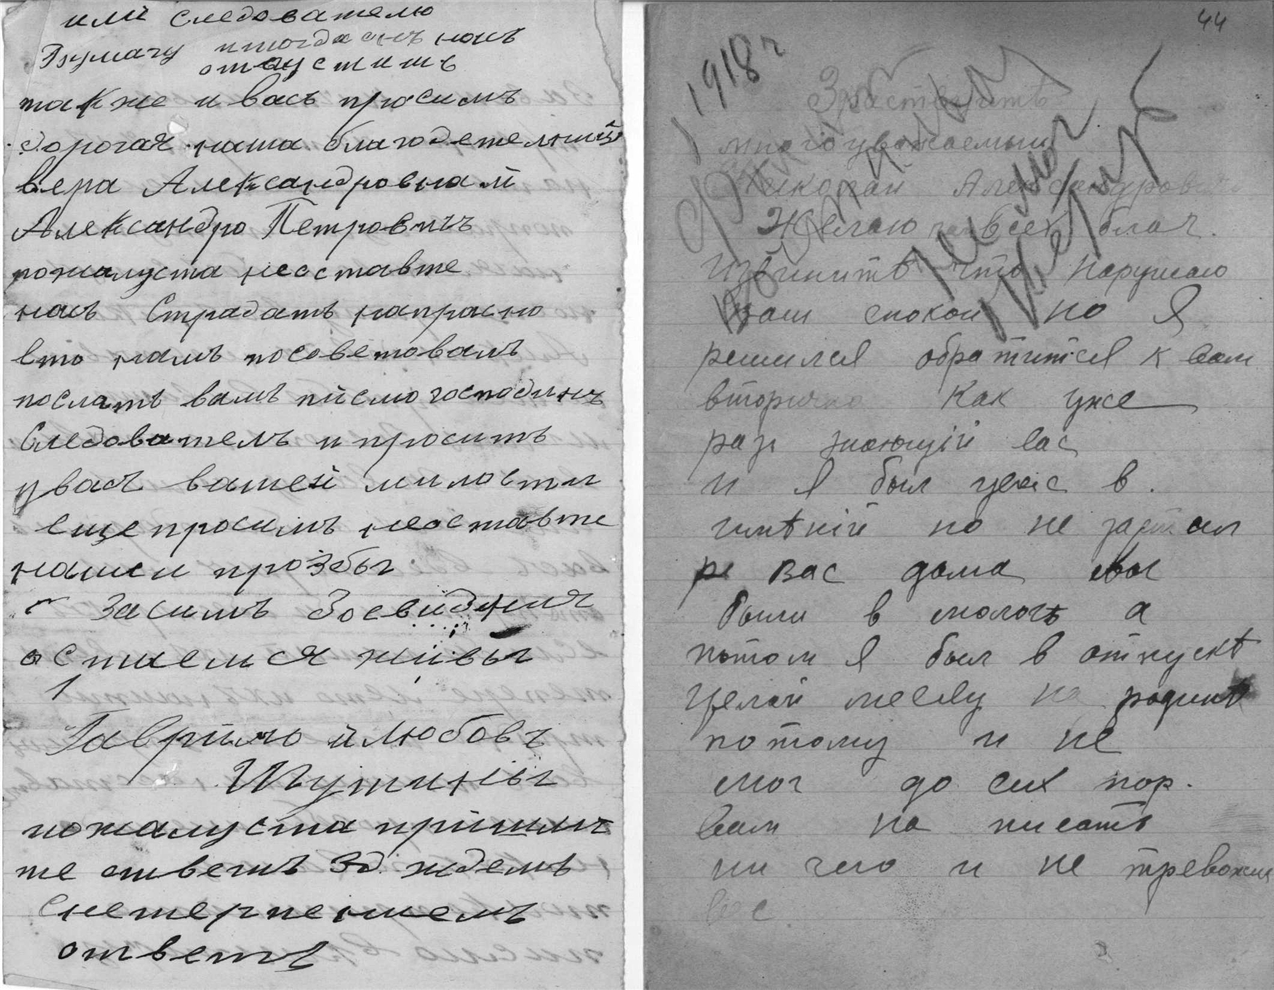 или следователю
бумагу итогда онъ насъ
отпуститъ
также и васъ просимъ
дорогая наша благодетельница
Вера Александровнай
Александро Петровичъ
пожалуста неоставте
насъ Страдать напрасно
ето намъ посоветовалъ
послать вамъ писмо господинъ
Следователь и просить
увасъ вашей милости
еще просимъ неоставте
нашеи прозбы
Засимъ досвидания
остаемся живы
Гаврило и Любовъ
пожалуста пришли
те ответъ ждемъ
снетерпениемъ
ответъ
44
1918 г
Здраствуите
многоуважаемый
Николаи Александрович
Желаю всех благ.
Извините что нарушаю
ваш спокои но Я
решился обратится к вам
вторично как уже
раз знающий вас
и я был увас в.
имѣний но не застал
вас дома вы
были в мологѣ а
потом я был в отпускѣ
целай месец на родинѣ
потому и не
мог до сих пор.
вам на писать
ни чего и не тревожил
вас